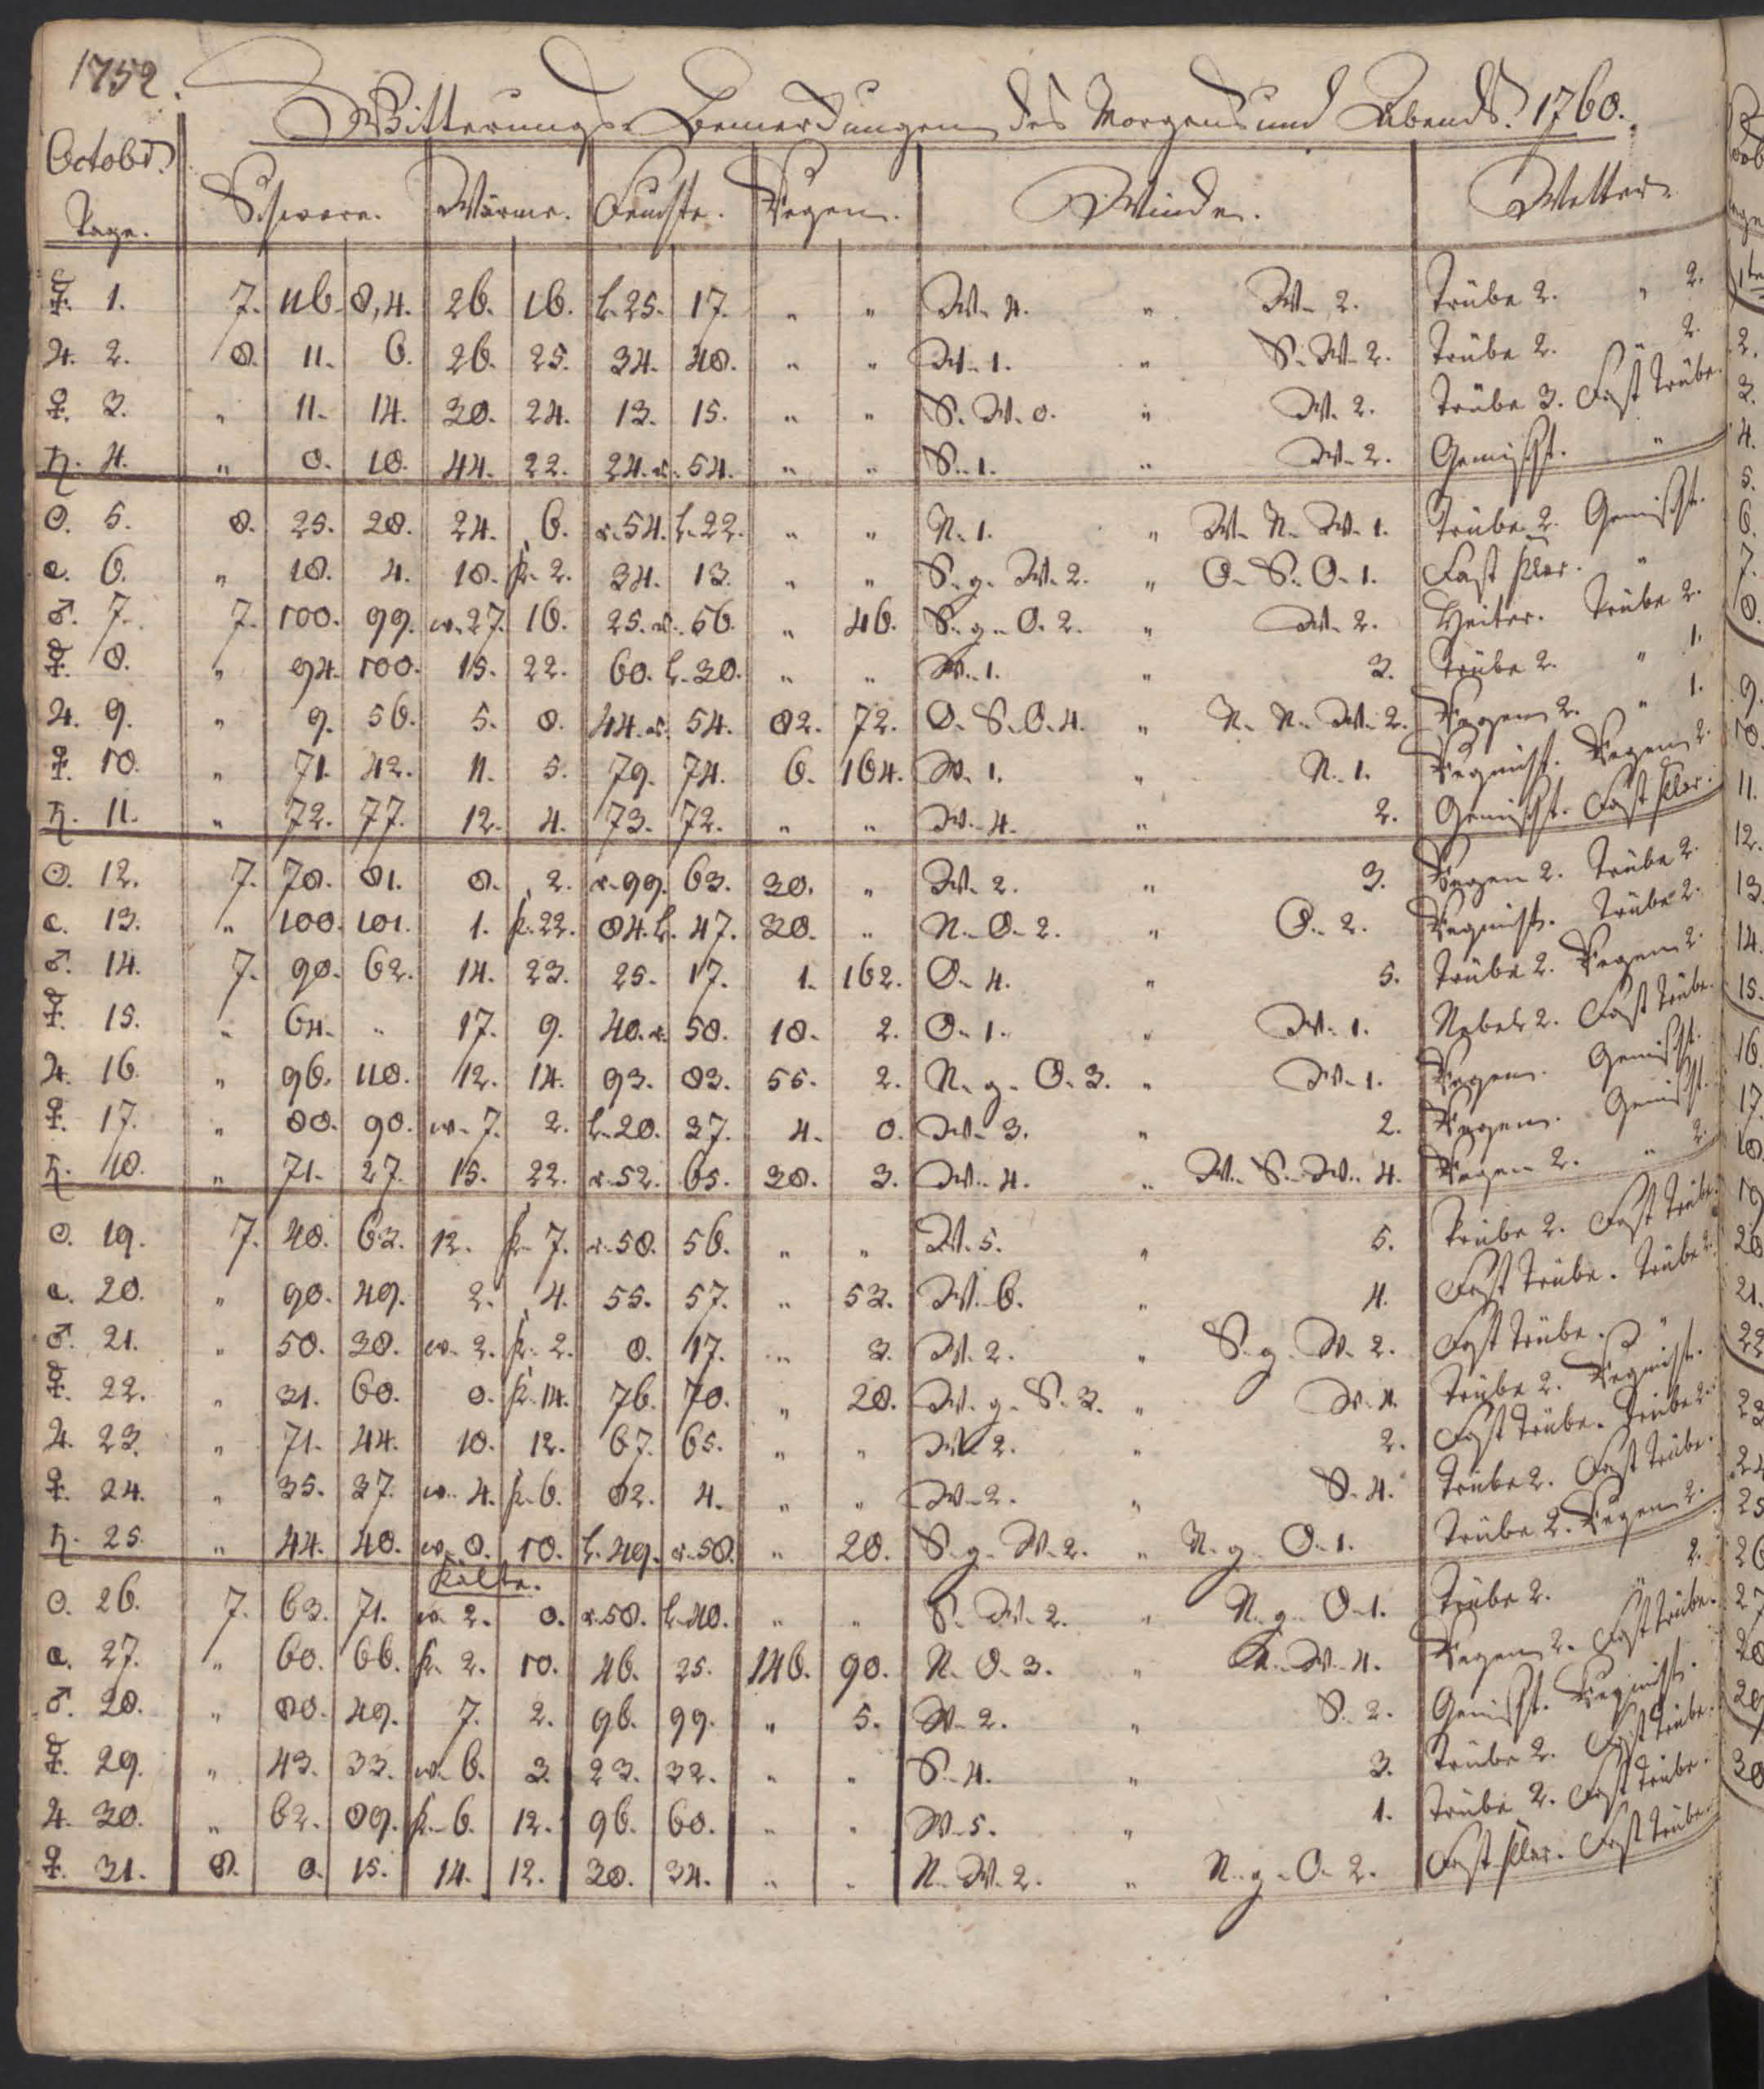 1752.
Witterungs-Bemerckungen des Morgens und Abends. 1760.
Octobr.
Tage. Schwere. Wärme. Feuchte. Regen. Winde. Wetter.
☿. 1. 7. 116. 8,4. 26. 16. l. 25. 17. " " W. 4. " W. 2. Trübe 2. " 2.
♃. 2. 8. 11. 6. 26. 25. 34. 48. " " W. 1. " S. W. 2. Trübe 2. " 2.
♀. 3. " 11. 14. 30. 24. 13. 15. " " S. W. 0. " W. 2. Trübe 3. Fast Trübe.
♄. 4. " 0. 18. 44. 22. 24. r. 54. " " S. 1. " W. 2. Gemischt. "
☉. 5. 8. 25. 28. 24. 6. r. 54. l. 22. " " N. 1. " W. N. W. 1. Trübe 2. Gemischt.
☾. 6. " 18. 4. 18. k. 2. 34. 13. " " S. g. W. 2. " O. S. O. 1. Fast klar. "
♂. 7. 7. 100. 99. w. 27. 16. 25. r. 56. " 46. S. g. O. 2. " W. 2. Heiter. Trübe 2.
☿. 8. " 94. 100. 15. 22. 60. l. 30. " " W. 1. " 3. Trübe 2. " 1.
♃. 9. " 9. 56. 5. 8. 44. r. 54. 82. 72. O. S. O. 4. " N. N. W. 2. Regen 2. " 1.
♀. 10. " 71. 42. 11. 5. 79. 74. 6. 164. W. 1. " N. 1. Regnicht. Regen 2.
♄. 11. " 72. 77. 12. 4. 73. 72. " " W. 4. " 2. Gemischt. Fast klar.
☉. 12. 7. 78. 81. 8. 2. r. 99. 63. 30. " W. 2. " 3. Regen 2. Trübe 2.
☾. 13. " 100. 101. 1. k. 22. 84. l. 47. 30. " N. O. 2. " O. 2. Regnicht. Trübe 2.
♂. 14. 7. 90. 62. 14. 23. 25. 17. 1. 162. O. 4. " 5. Trübe 2. Regen 2.
☿. 15. " 64. " 17. 9. 40. r. 58. 18. 2. O. 1. " W. 1. Nebel 2. Fast Trübe.
♃. 16. " 96. 118. 12. 14. 93. 83. 55. 2. N. g. O. 3. " W. 1. Regen. Gemischt.
♀. 17. " 88. 90. w. 7. 2. l. 20. 37. 4. 0. W. 3. " 2. Regen. Gemischt.
♄. 18. " 71. 27. 15. 22. r. 52. 65. 38. 3. W. 4. " W. S. W. 4. Regen 2. " 2.
☉. 19. 7. 48. 63. 12. k. 7. r. 58. 56. " " W. 5. " 5. Trübe 2. Fast Trübe.
☾. 20. " 90. 49. 2. 4. 55. 57. " 53. W. 6. " 4. Fast Trübe. Trübe 2.
♂. 21. " 50. 38. w. 2. k. 2. 0. 17. " 3. W. 2. " S. g. W. 2. Fast Trübe. "
☿. 22. " 31. 60. 0. k. 14. 76. 70. " 28. W. g. S. 3. " W. 4. Trübe 2. Regnicht.
♃. 23. " 71. 44. 10. 12. 67. 65. " " W. 2. " 2. Fast Trübe. Trübe 2.
♀. 24. " 35. 37. w. 4. k. 6. 82. 4. " " W. 2. " S. 4. Trübe 2. Fast Trübe.
♄. 25. " 44. 40. w. 0. 10. l. 49. r. 58. " 20. S. g. W. 2. " N. g. O. 1. Trübe 2. Regen 2.
Kälte.
☉. 26. 7. 63. 71. w. 2. 0. r. 58. l. 40. " " S. W. 2. " N. g. O. 1. Trübe 2. " 2.
☾. 27. " 60. 66. k. 2. 10. 46. 25. 146. 90. N. O. 3. " N. W. 4. Regen 2. Fast Trübe.
♂. 28. " 80. 49. 7. 2. 96. 99. " 5. W. 2. " S. 2. Gemischt. Regnicht.
☿. 29. " 43. 33. w. 6. 3. 23. 32. " " S. 4. " 3. Trübe 2. Fast Trübe.
♃. 30. " 62. 89. k. 6. 12. 96. 60. " " W. 5. " 1. Trübe 2. Fast Trübe.
♀. 31. 8. 0. 15. 14. 12. 30. 34. " " N. W. 2. " N. g. O. 2. Fast klar. Fast Trübe.